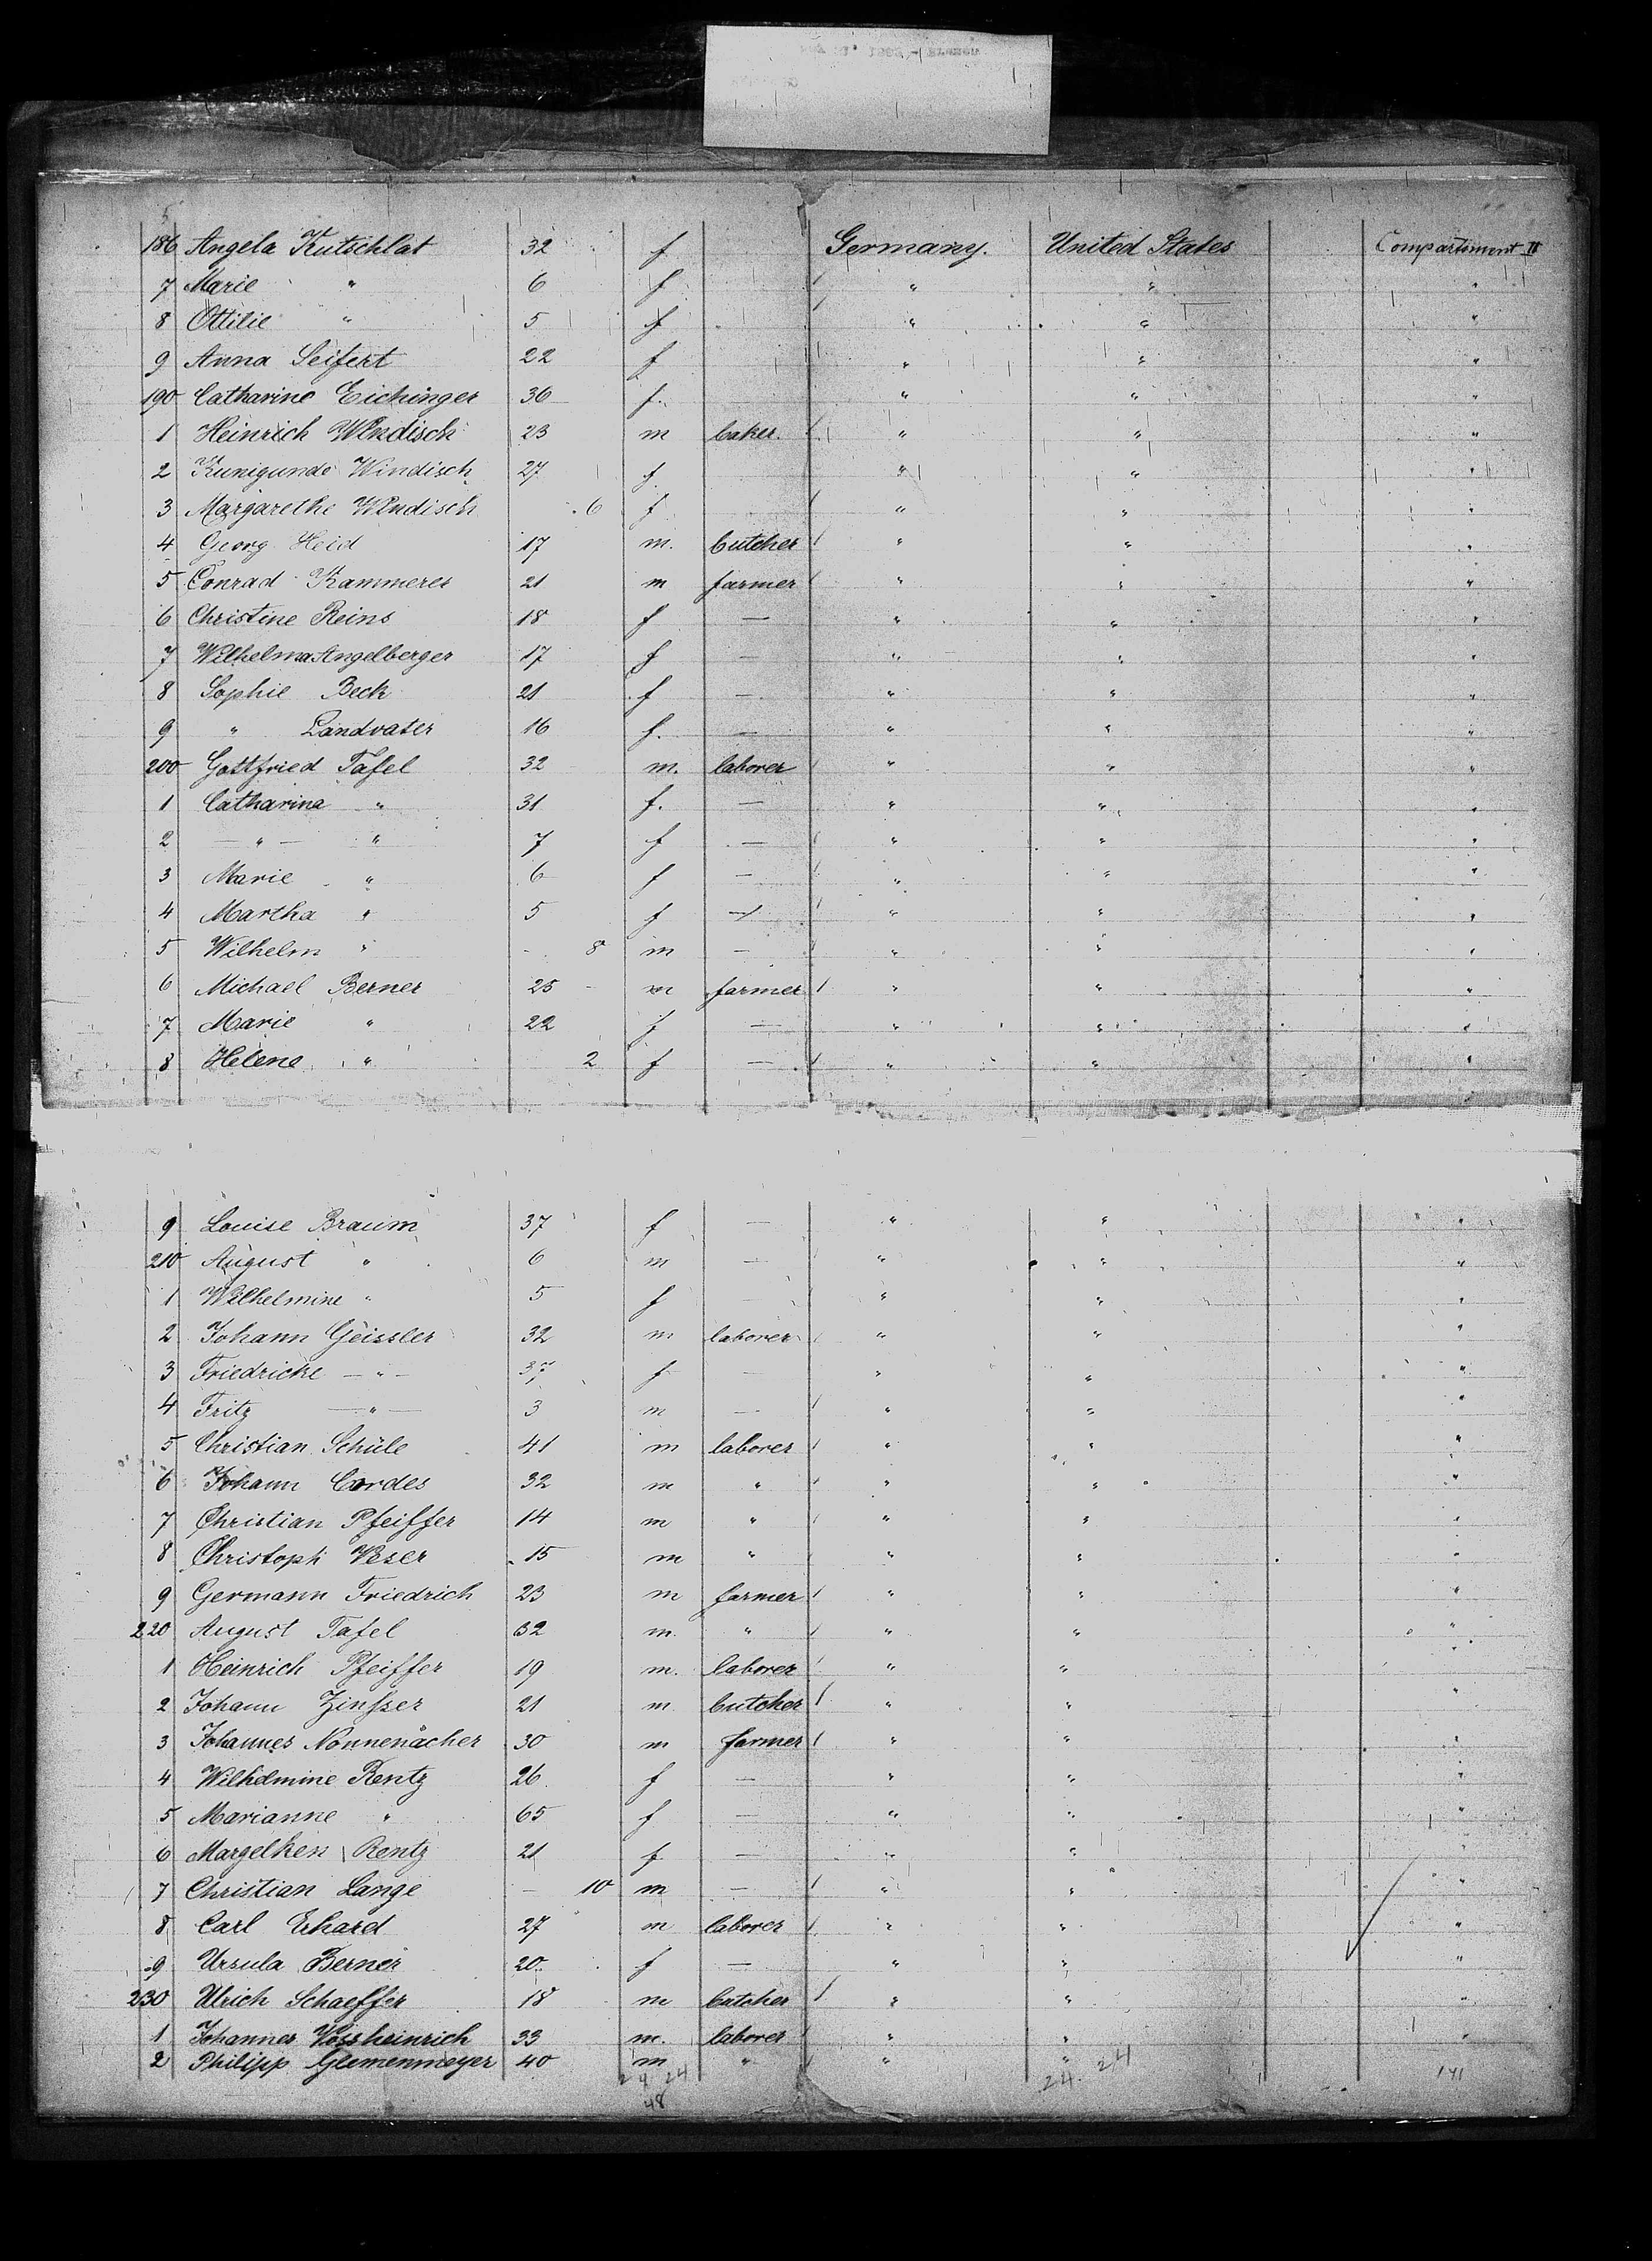 186 Angela Kutschlat 32 f Germany. United States Compartiment II
7 Marie " 6 f " " "
8 Ottilie " 5 f " " "
9 Anna Seifert 22 f " " "
190 Catharine Eichinger 36 f. " " "
1 Heinrich Windisch 23 m baker " " "
2 Kunigunde Windisch 27 f " " "
3 Margarethe Windisch 6 f " " "
4 Georg Heid 17 m. butcher " " "
5 Conrad Kammerer 21 m farmer " " "
6 Christine Reins 18 f — " " "
7 Wilhelma Angelberger 17 f — " " "
8 Sophie Beck 21 f — " " "
9 " Landvater 16 f. — " " "
200 Gottfried Tafel 32 m. laborer " " "
1 Catharina " 31 f. — " " "
2 — " — " 7 f — " " "
3 Marie " 6 f — " " "
4 Martha " 5 f — " " "
5 Wilhelm " - 8 m — " " "
6 Michael Berner 25 - m farmer " " "
7 Marie " 22 f — " " "
8 Helene " 2 f — " " "
9 Louise Braum 37 f — " " "
210 August " 6 m — " " "
1 Wilhelmine " 5 f — " " "
2 Johann Geissler 32 m laborer " " "
3 Friedricke — " — 37 f — " " "
4 Fritz — " — 3 m — " " "
5 Christian Schüle 41 m laborer " " "
6 Johann Cordes 32 m " " " "
7 Christian Pfeiffer 14 m " " " "
8 Christoph Weser 15 m " " " "
9 Germann Friedrich 23 m farmer " " "
220 August Tafel 32 m. " " " "
1 Heinrich Pfeiffer 19 m. laborer " " "
2 Johann Zinsser 21 m butcher " " "
3 Johannes Nonnenacher 30 m farmer " " "
4 Wilhelmine Rentz 26 f — " " "
5 Marianne " 65 f — " " "
6 Margelken Rentz 21 f — " " "
7 Christian Lange — 10 m — " " "
8 Carl Erhard 27 m laborer " " "
9 Ursula Berner 20 f — " " "
230 Ulrich Schaeffer 18 m butcher " " "
1 Johannes Vossheinrich 33 m. laborer " " "
2 Philipp Glemenmeyer 40 m " " " "
24 24 24 24 141
48